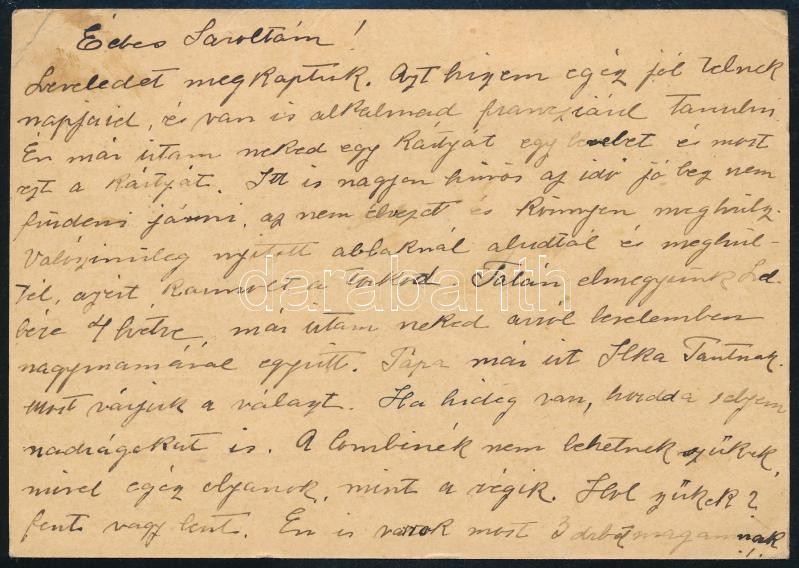 Édes Saroltám!
Leveledet megkaptuk. Azt hiszem egész jól telnek
napjaid, és van is alkalmad francziáúl tanulni
Én már irtam neked egy kártyát egy levelet és most
ezt a kártyát. Itt is nagyon hűvös az idő jó lesz nem
fürdeni járni, az nem élvezet és könnyen meghülsz.
Valószinüleg nyitott ablaknál aludtál és meghül-
tél, azért kapart a torkod. Talán elmegyünk
4 hétre már irtam neked arról levelemben
nagymamával együtt. Pápa már irt Ilka Tantnak.
Most várjuk a választ. Ha hideg van, hordd a selyem
nadrágokat is. A combinék nem lehetnek szűkek,
mivel egész olyanok, mint a régik. Hol szűkek?
fent vagy lent. Én is varrok most 3 drbot magamnak
darabanth.com